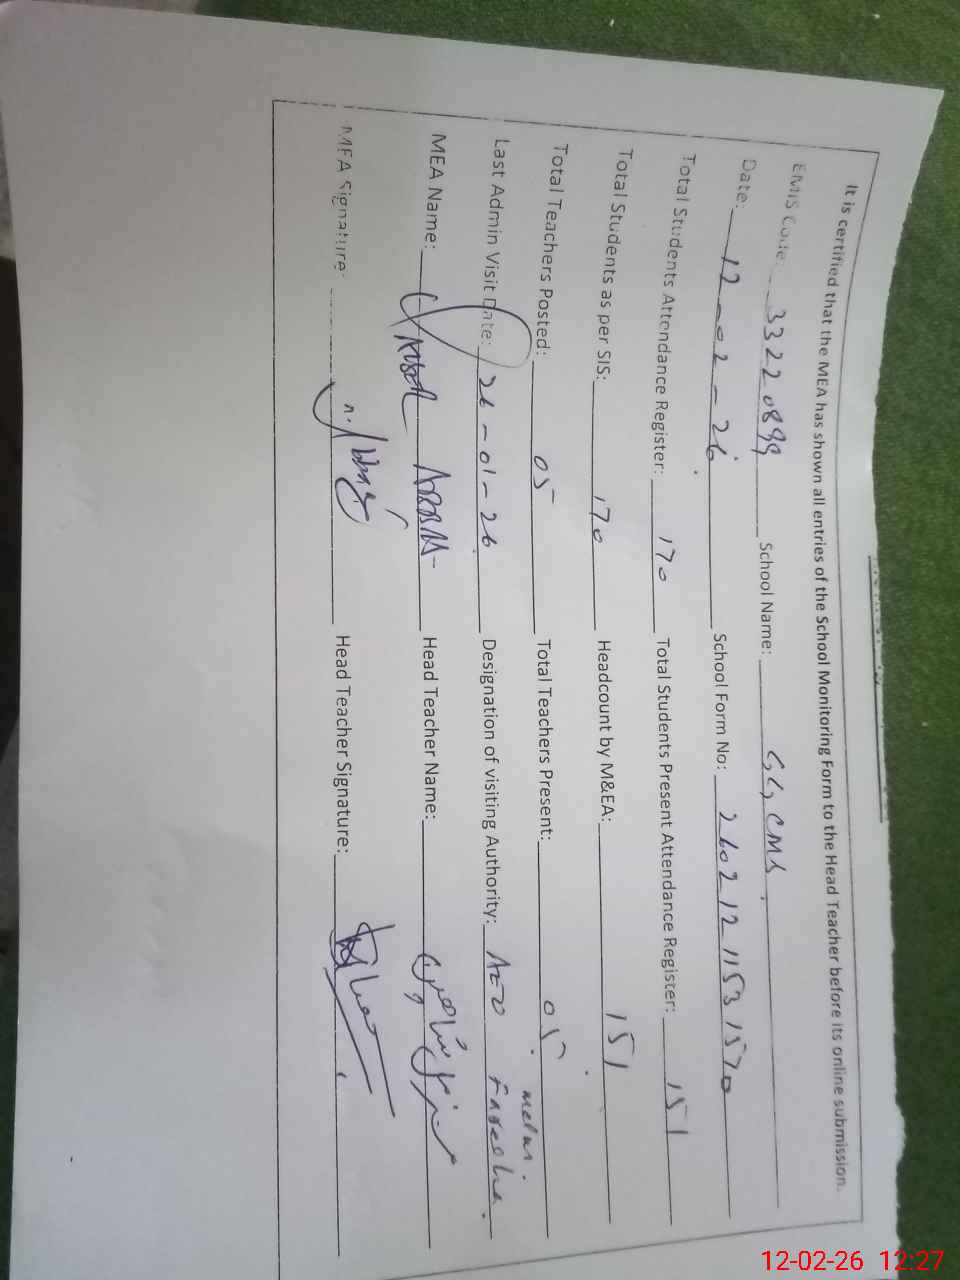 It is certified that the MEA has shown all entries of the School Monitoring Form to the Head Teacher before its online submission.
EMIS Code: 33220899 School Name: GGCMS
Date: 12-02-26 School Form No: 26021211531570
Total Students Attendance Register: 170 Total Students Present Attendance Register: 151
Total Students as per SIS: 170 Headcount by M&EA: 151
Total Teachers Posted: 05 Total Teachers Present: 05
Last Admin Visit Date: 26-01-26 Designation of visiting Authority: AEO
MEA Name: Head Teacher Name:
MEA Signature: Head Teacher Signature:
12-02-26 12:27